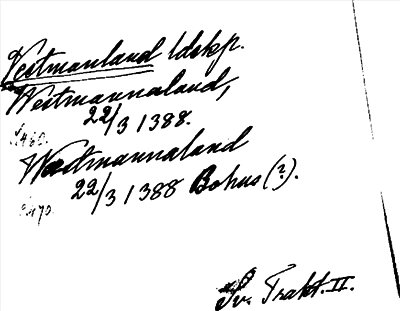 Vestmanland ldskp.
Westmannaland,
22/3 1388.
s. 460.
Westmannaland
22/3 1388 Bohus (?).
s. 470.
Sv. Trakt. II.